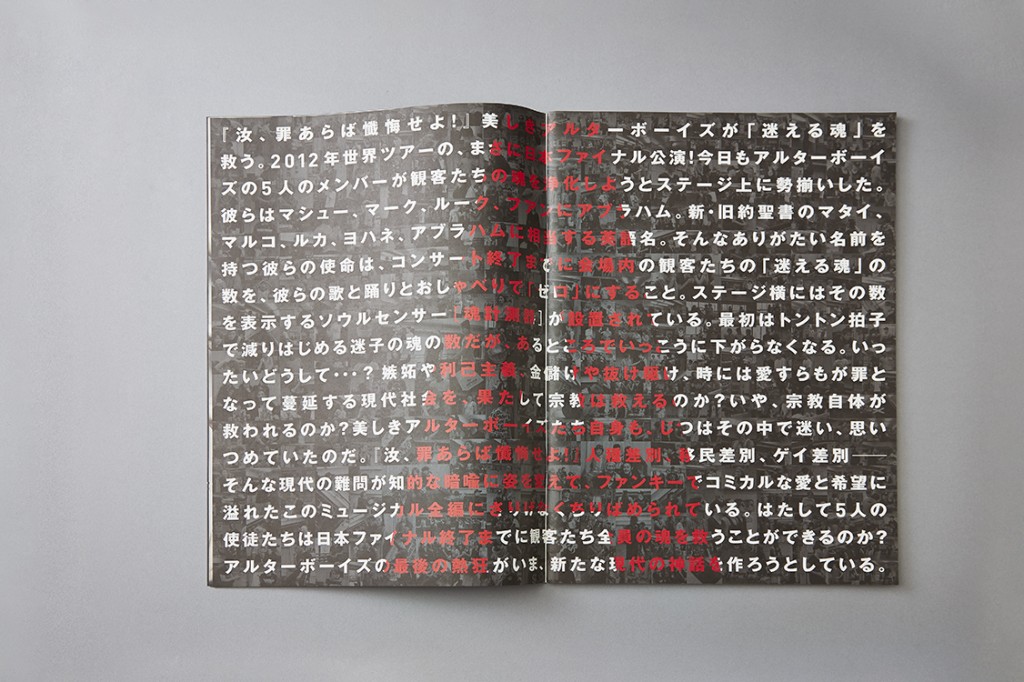 『汝、罪あらば懺悔せよ!』美しきアルターボーイズが「迷える魂」を
救う。2012年世界ツアーの、まさに日本ファイナル公演!今日もアルターボーイ
ズの5人のメンバーが観客たちの魂を浄化しようとステージ上に勢揃いした。
彼らはマシュー、マーク、ルーク、ファンにアブラハム。新・旧約聖書のマタイ、
マルコ、ルカ、ヨハネ、アブラハムに相当する英語名。そんなありがたい名前を
持つ彼らの使命は、コンサート終了までに会場内の観客たちの「迷える魂」の
数を、彼らの歌と踊りとおしゃべりで「ゼロ」にすること。ステージ横にはその数
を表示するソウルセンサー[魂計測器]が設置されている。最初はトントン拍子
で減りはじめる迷子の魂の数だが、あるところでいっこうに下がらなくなる。いっ
たいどうして・・・?嫉妬や利己主義、金儲けや抜け駆け、時には愛すらもが罪と
なって蔓延する現代社会を、果たして宗教は救えるのか?いや、宗教自体が
救われるのか?美しきアルターボーイズたち自身も、じつはその中で迷い、思い
つめていたのだ。『汝、罪あらば懺悔せよ!』人種差別、移民差別、ゲイ差別──
そんな現代の難問が知的な暗喩に姿を変えて、ファンキーでコミカルな愛と希望に
溢れたこのミュージカル全編にさりげなくちりばめられている。はたして5人の
使徒たちは日本ファイナル終了までに観客たち全員の魂を救うことができるのか?
アルターボーイズの最後の熱狂がいま、新たな現代の神話を作ろうとしている。